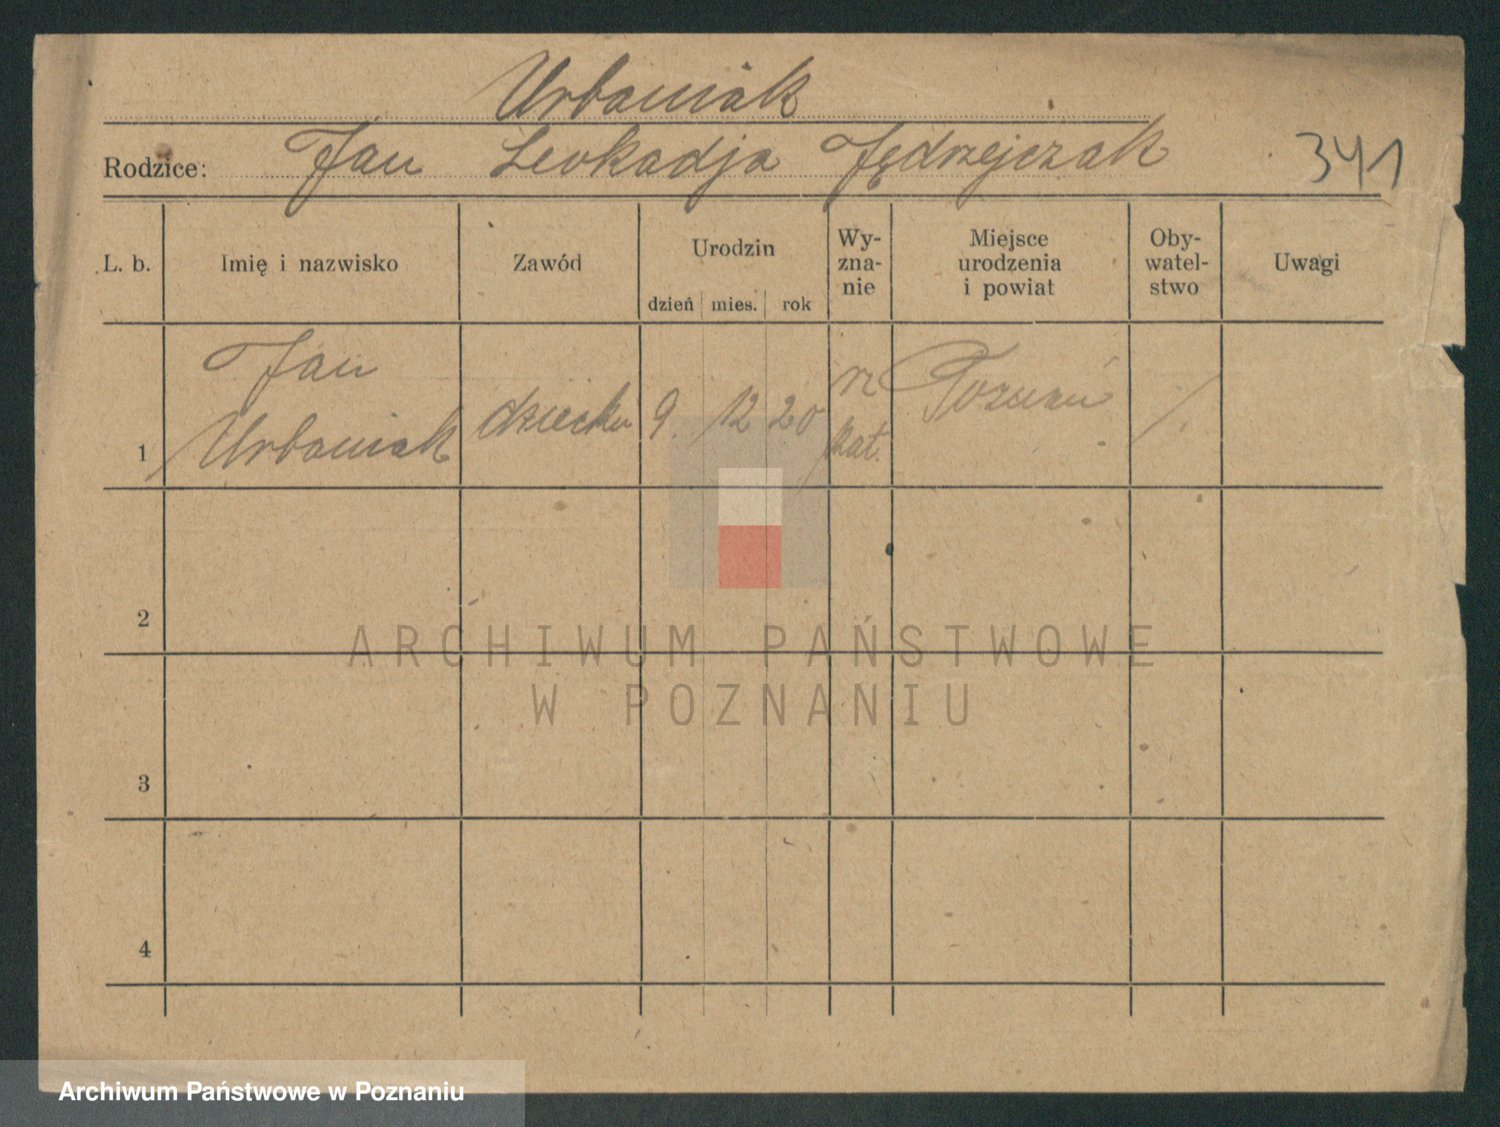 Urbaniak
Rodzice: Jan Leokadja Jędrzejczak 341
L. b. Imię i nazwisko Zawód Urodzin dzień mies. rok Wy-zna-nie Miejsce urodzenia i powiat Oby-watel-stwo Uwagi
1 Jan Urbaniak dziecko 9. 12 20 rz kat. Poznań /.
2
3
4
ARCHIWUM PAŃSTWOWE
W POZNANIU
Archiwum Państwowe w Poznaniu